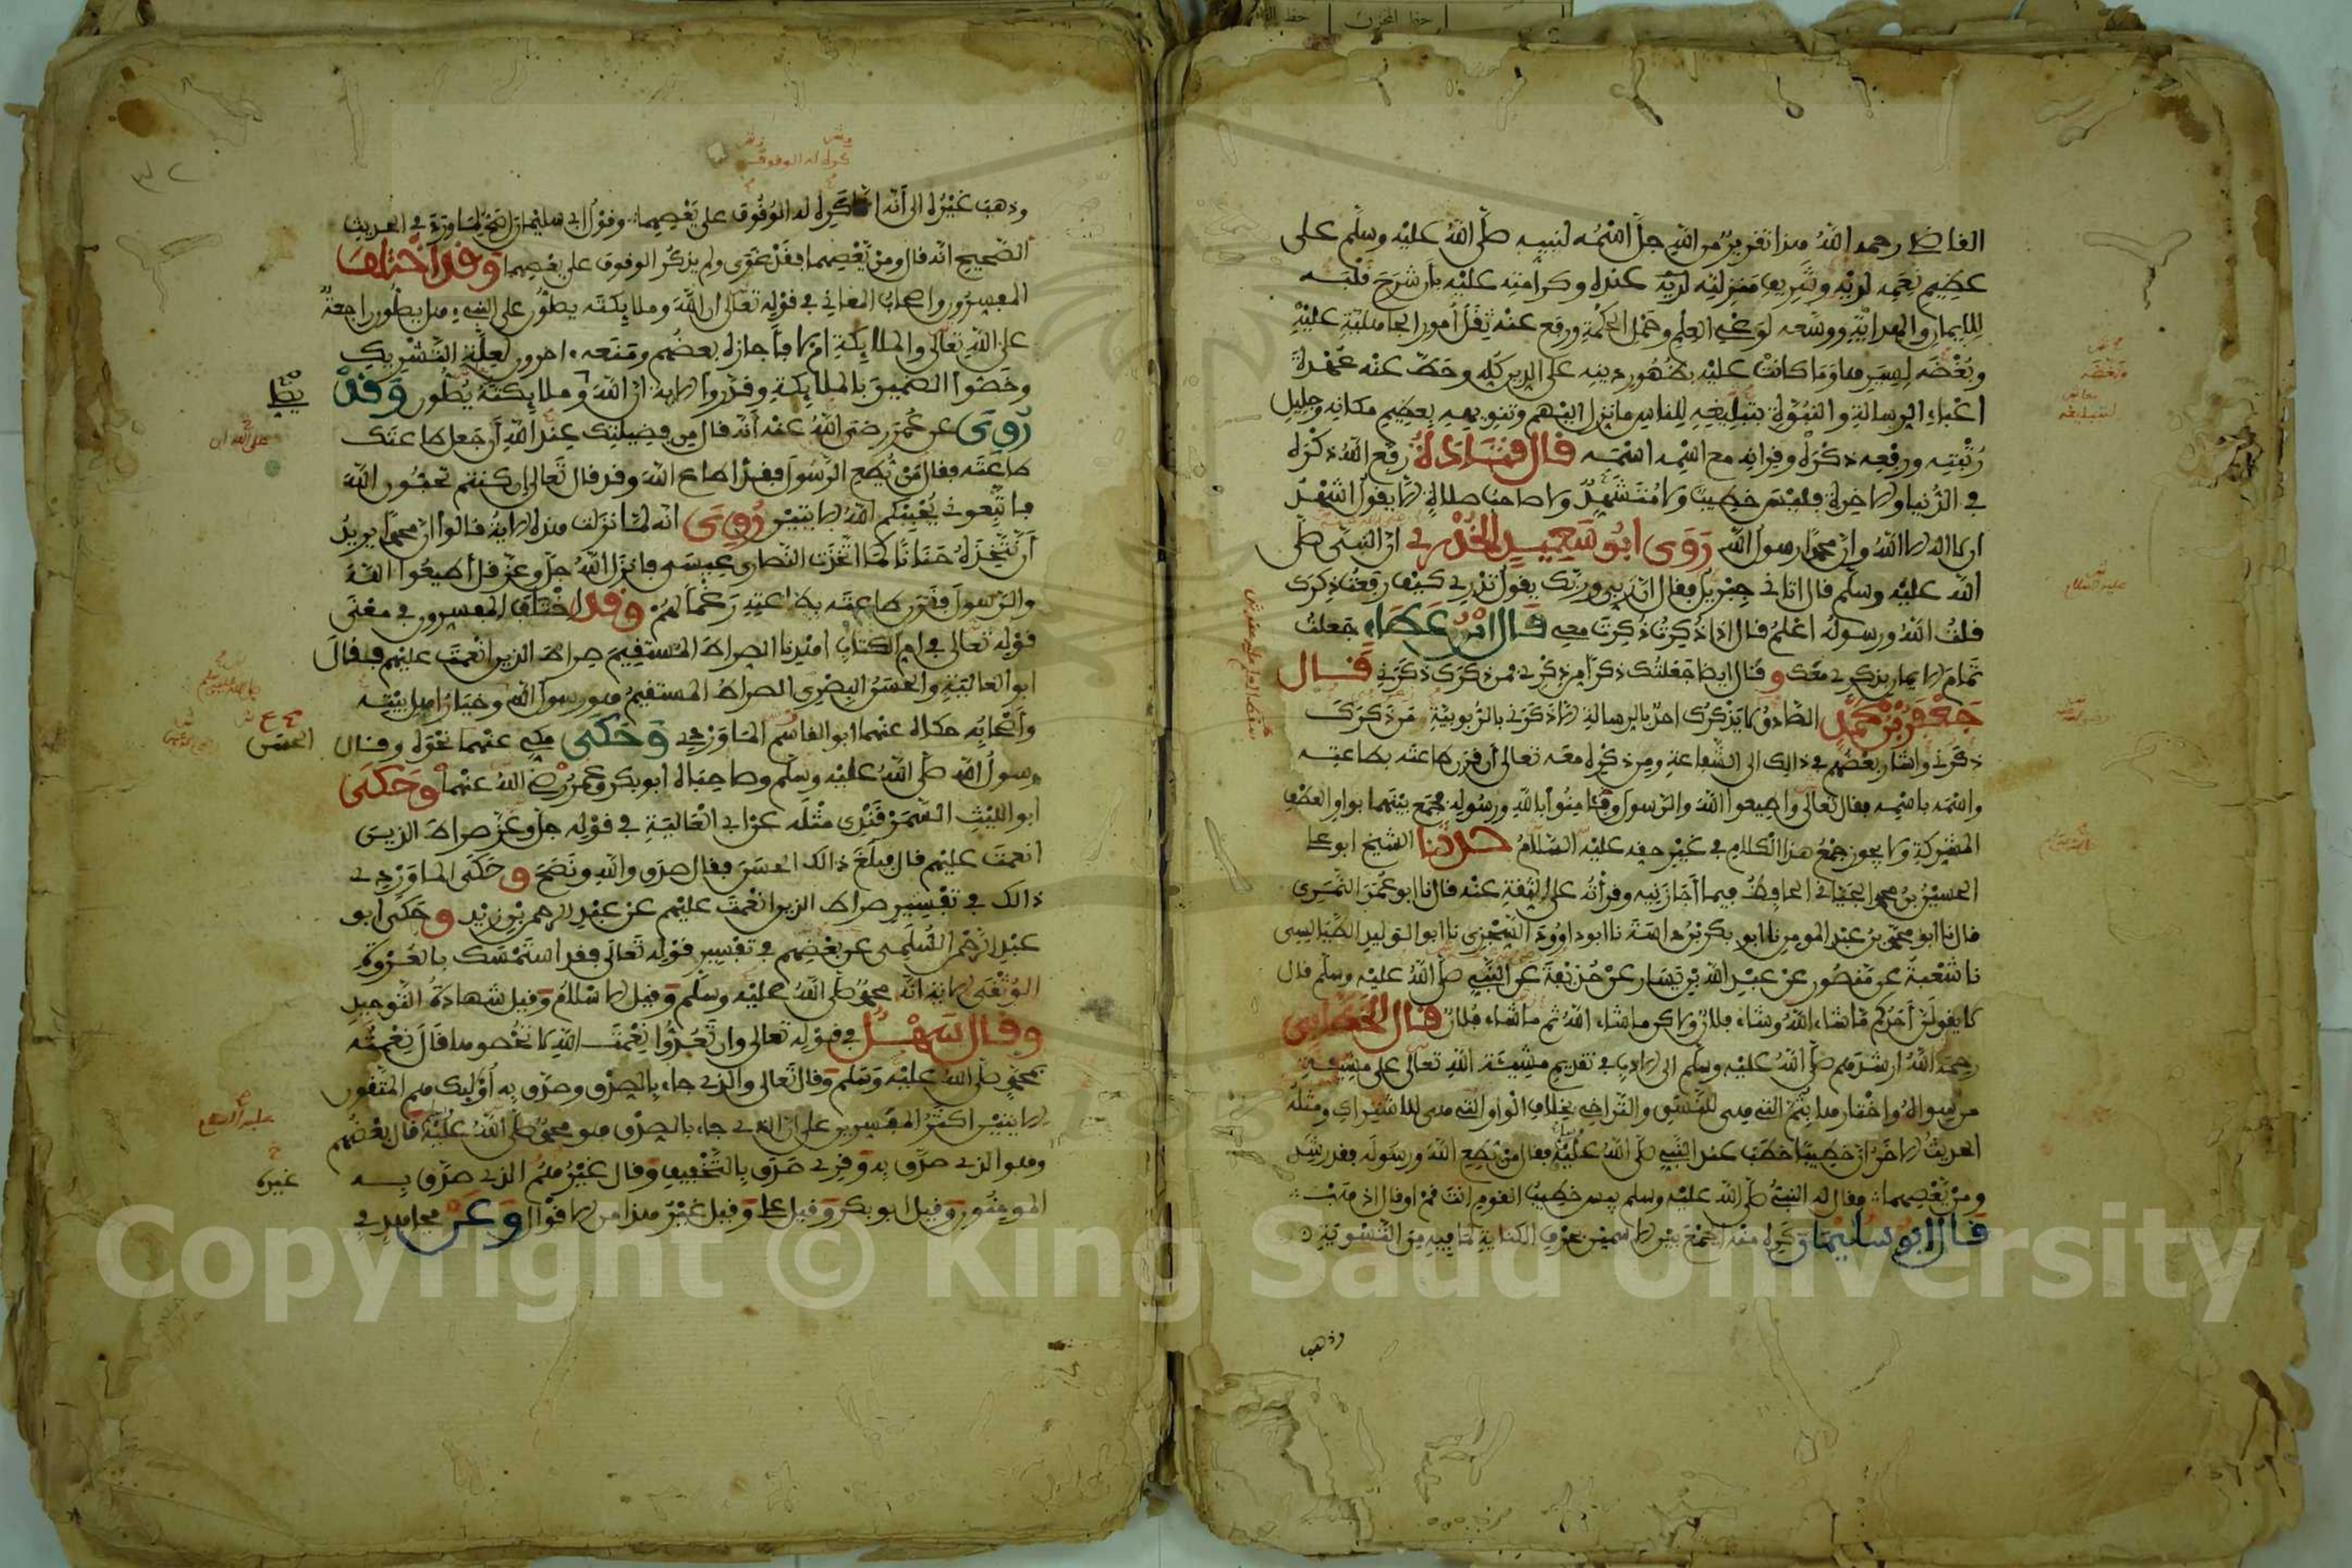 القاضي رحمه الله هذا تقرير من الله جل اسمه لنبيه صلى الله عليه وسلم على
عظيم نعمه لديه وشريف منزلته لديه عنده وكرامته عليه بأن شرح قلبه
للإيمان والهداية ووسعه لوعي العلم وحمل الحكمة ورفع عنه ثقل أمور الجاهلية عليه
وبغضه لسيرها وما كانت عليه بظهور دينه على الدين كله وحط عنه عهدة
أعباء الرسالة والنبوة بتبليغه للناس ما نزل إليهم وتنويهه بعظيم مكانه وجليل
رتبته ورفعه ذكره وقرانه مع اسمه اسمه قال قتادة رفع الله ذكره
في الدنيا والاخرة فليس خطيب ولا متشهد ولا صاحب صلاة الا يقول اشهد
ان لا اله الا الله وان محمدا رسول الله روى ابو سعيد الخدري ان النبي صلى
الله عليه وسلم قال اتاني جبريل فقال ان ربي وربك يقول تدري كيف رفعت ذكرك
قلت الله ورسوله اعلم قال اذا ذكرت ذكرت معي قال ابن عطاء جعلت
تمام الايمان بذكري معك وقال ايضا جعلتك ذكرا من ذكري فمن ذكرك ذكرني قال
جعفر بن محمد الصادق لا يذكرك احد بالرسالة الا ذكرني بالربوبية
ذكرني واشار بعضهم في ذالك الى الشفاعة ومن ذكره معه تعالى ان قرن طاعته بطاعته
واسمه باسمه فقال تعالى واطيعوا الله والرسول وءامنوا بالله ورسوله فجمع بينهما بواو العطف
المشركة ولا يجوز جمع هذا الكلام في غير حقه عليه السلام حدثنا الشيخ ابو علي
الحسين بن محمد الجياني الحافظ فيما اجازنيه وقرأته على الثقة عنه قال نا ابو عمر النمري
قال نا ابو محمد بن عبد المومن نا ابو بكر بن داسة نا ابو داوود السجزي نا ابو الوليد الطيالسي
نا شعبة عن منصور عن عبد الله بن يسار عن حذيفة عن النبي صلى الله عليه وسلم قال
لا يقولن احدكم ما شاء الله وشاء فلان ولاكن ما شاء الله ثم ما شاء فلان قال الخطابي
رحمه الله ارشدهم صلى الله عليه وسلم الى الادب في تقديم مشيئة الله تعالى على مشيئة
من سواه واختارها بثم التي هي للنسق والتراخي بخلاف الواو التي هي للاشتراك ومثله
الحديث الاخر ان خطيبا خطب عند النبي صلى الله عليه فقال من يطع الله ورسوله فقد رشد
ومن يعصهما فقال له النبي صلى الله عليه وسلم بيس خطيب القوم انت قم او قال اذهب
قال ابو سليمان كره منه الجمع بين الاسمين بحرف الكناية لما فيه من التسوية
وذهب
وذهب غيره الى انه انما كره له الوقوف على يعصهما وقول ابي سليمان اصح لما ورد في الحديث
الصحيح انه قال ومن يعصهما فقد غوى ولم يذكر الوقوف على يعصهما وقد اختلف
المفسرون واصحاب المعاني في قوله تعالى ان الله وملايكته يصلون على النبي هل يصلون راجعة
على الله تعالى والملايكة ام لا فاجازه بعضهم ومنعه اخرون لعلة التشريك
وخصوا الضمير بالملايكة وقدروا الاية ان الله وملايكته يصلون وقد
روي عن عمر رضي الله عنه انه قال من فضيلتك عند الله ان جعل طاعتك
طاعته فقال من يطع الرسول فقد اطاع الله وقد قال تعالى ان كنتم تحبون الله
فاتبعوني يحببكم الله الايتين روي انه لما نزلت هذه الاية قالوا ان محمدا يريد
ان نتخذه حنانا كما اتخذت النصارى عيسى فانزل الله جل وعز قل اطيعوا الله
والرسول فقرن طاعته بطاعته رغما لهم وقد اختلف المفسرون في معنى
قوله تعالى في ام الكتاب اهدنا الصراط المستقيم صراط الذين انعمت عليهم فقال
ابو العالية والحسن البصري الصراط المستقيم هو رسول الله وخيار اهل بيته
واصحابه حكاه عنهما ابو الحسن الماوردي وحكى مكي عنهما نحوه وقال
رسول الله صلى الله عليه وسلم وصاحباه ابو بكر وعمر رضي الله عنهما وحكى
ابو الليث السمرقندي مثله عن ابي العالية في قوله جل وعز صراط الذين
انعمت عليهم قال فبلغ ذالك الحسن فقال صدق والله ونصح وحكى الماوردي
ذالك في تفسير صراط الذين انعمت عليهم عن عبد الرحمن بن زيد وحكى ابو
عبد الرحمن السلمي عن بعضهم في تفسير قوله تعالى فقد استمسك بالعروة
الوثقى الاية انه محمد صلى الله عليه وسلم وقيل الاسلام وقيل شهادة التوحيد
وقال سهل في قوله تعالى وان تعدوا نعمت الله لا تحصوها قال نعمته
بمحمد صلى الله عليه وسلم وقال تعالى والذي جاء بالصدق وصدق به اوليك هم المتقون
الايتين اكثر المفسرين على ان الذي جاء بالصدق هو محمد صلى الله عليه قال بعضهم
وهو الذي صدق به وقرئ صدق بالتخفيف وقال غيرهم الذي صدق به
المومنون وقيل ابو بكر وقيل علي وقيل غير هذا من الاقوال وعن مجاهد في
الحسن
غيره
Copyright © King Saud University